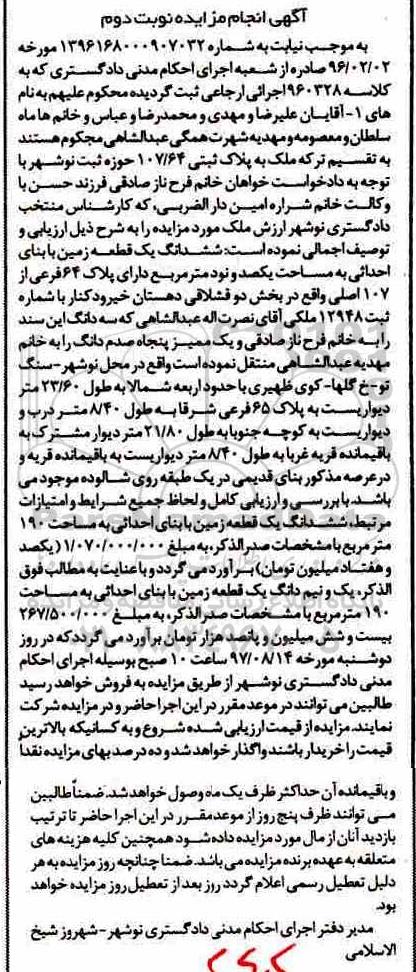 آگهی انجام مزایده نوبت دوم
به موجب نیابت به شماره ۱۳۹۶۱۶۸۰۰۰۹۰۷۰۳۲ مورخه
۹۶/۰۲/۰۲ صادره از شعبه اجرای احکام مدنی دادگستری که به
کلاسه ۹۶۰۳۲۸ اجرائی ارجاعی ثبت گردیده محکوم علیهم به نام
های ۱- آقایان علیرضا و مهدی و محمدرضا و عباس و خانم ها ماه
سلطان و معصومه و مهدیه شهرت همگی عبدالشاهی محکوم هستند
به تقسیم ترکه ملک به پلاک ثبتی ۱۰۷/۶۴ حوزه ثبت نوشهر با
توجه به دادخواست خواهان خانم فرح ناز صادقی فرزند حسن با
وکالت خانم شراره امین دار الضربی، که کارشناس منتخب
دادگستری نوشهر ارزش ملک مورد مزایده را به شرح ذیل ارزیابی و
توصیف اجمالی نموده است: ششدانگ یک قطعه زمین با بنای
احداثی به مساحت یکصد و نود متر مربع دارای پلاک ۶۴ فرعی از
۱۰۷ اصلی واقع در بخش دو قشلاقی دهستان خیرودکنار با شماره
ثبت ۱۲۹۴۸ ملکی آقای نصرت اله عبدالشاهی که سه دانگ این سند
را به خانم فرح ناز صادقی و یک ممیز پنجاه صدم دانگ را به خانم
مهدیه عبدالشاهی منتقل نموده است واقع در محل نوشهر-سنگ
تو-خ گلها-کوی ظهیری با حدود اربعه شمالا به طول ۲۳/۶۰ متر
دیواریست به پلاک ۶۵ فرعی شرقا به طول ۸/۴۰ متر درب و
دیواریست به کوچه جنوبا به طول ۲۱/۸۰ متر دیوار مشترک به
باقیمانده قریه غربا به طول ۸/۴۰ متر دیواریست به باقیمانده قریه و
در عرصه مذکور بنای قدیمی در یک طبقه روی شالوده موجود می
باشد. با بررسی و ارزیابی کامل و لحاظ جمیع شرایط و امتیازات
مرتبط، ششدانگ یک قطعه زمین با بنای احداثی به مساحت ۱۹۰
متر مربع با مشخصات صدرالذکر، به مبلغ ۱/۰۷۰/۰۰۰/۰۰۰ (یکصد
و هفتاد میلیون تومان) برآورد می گردد و با عنایت به مطالب فوق
الذکر، یک و نیم دانگ یک قطعه زمین با بنای احداثی به مساحت
۱۹۰ متر مربع با مشخصات صدرالذکر، به مبلغ ۲۶۷/۵۰۰/۰۰۰
بیست و شش میلیون و پانصد هزار تومان برآورد می گردد که در روز
دوشنبه مورخه ۹۷/۰۸/۱۴ ساعت ۱۰ صبح بوسیله اجرای احکام
مدنی دادگستری نوشهر از طریق مزایده به فروش خواهد رسید
طالبین می توانند در موعد مقرر در این اجرا حاضر و در مزایده شرکت
نمایند. مزایده از قیمت ارزیابی شده شروع و به کسانیکه بالاترین
قیمت را خریدار باشند واگذار خواهد شد و ده درصد بهای مزایده نقداً
و باقیمانده آن حداکثر ظرف یک ماه وصول خواهد شد. ضمناً طالبین
می توانند ظرف پنج روز از موعد مقرر در این اجرا حاضر تا ترتیب
بازدید آنان از مال مورد مزایده داده شود همچنین کلیه هزینه های
متعلقه به عهده برنده مزایده می باشد. ضمنا چنانچه روز مزایده به هر
دلیل تعطیل رسمی اعلام گردد روز بعد از تعطیل روز مزایده خواهد
بود.
مدیر دفتر اجرای احکام مدنی دادگستری نوشهر-شهروز شیخ
الاسلامی